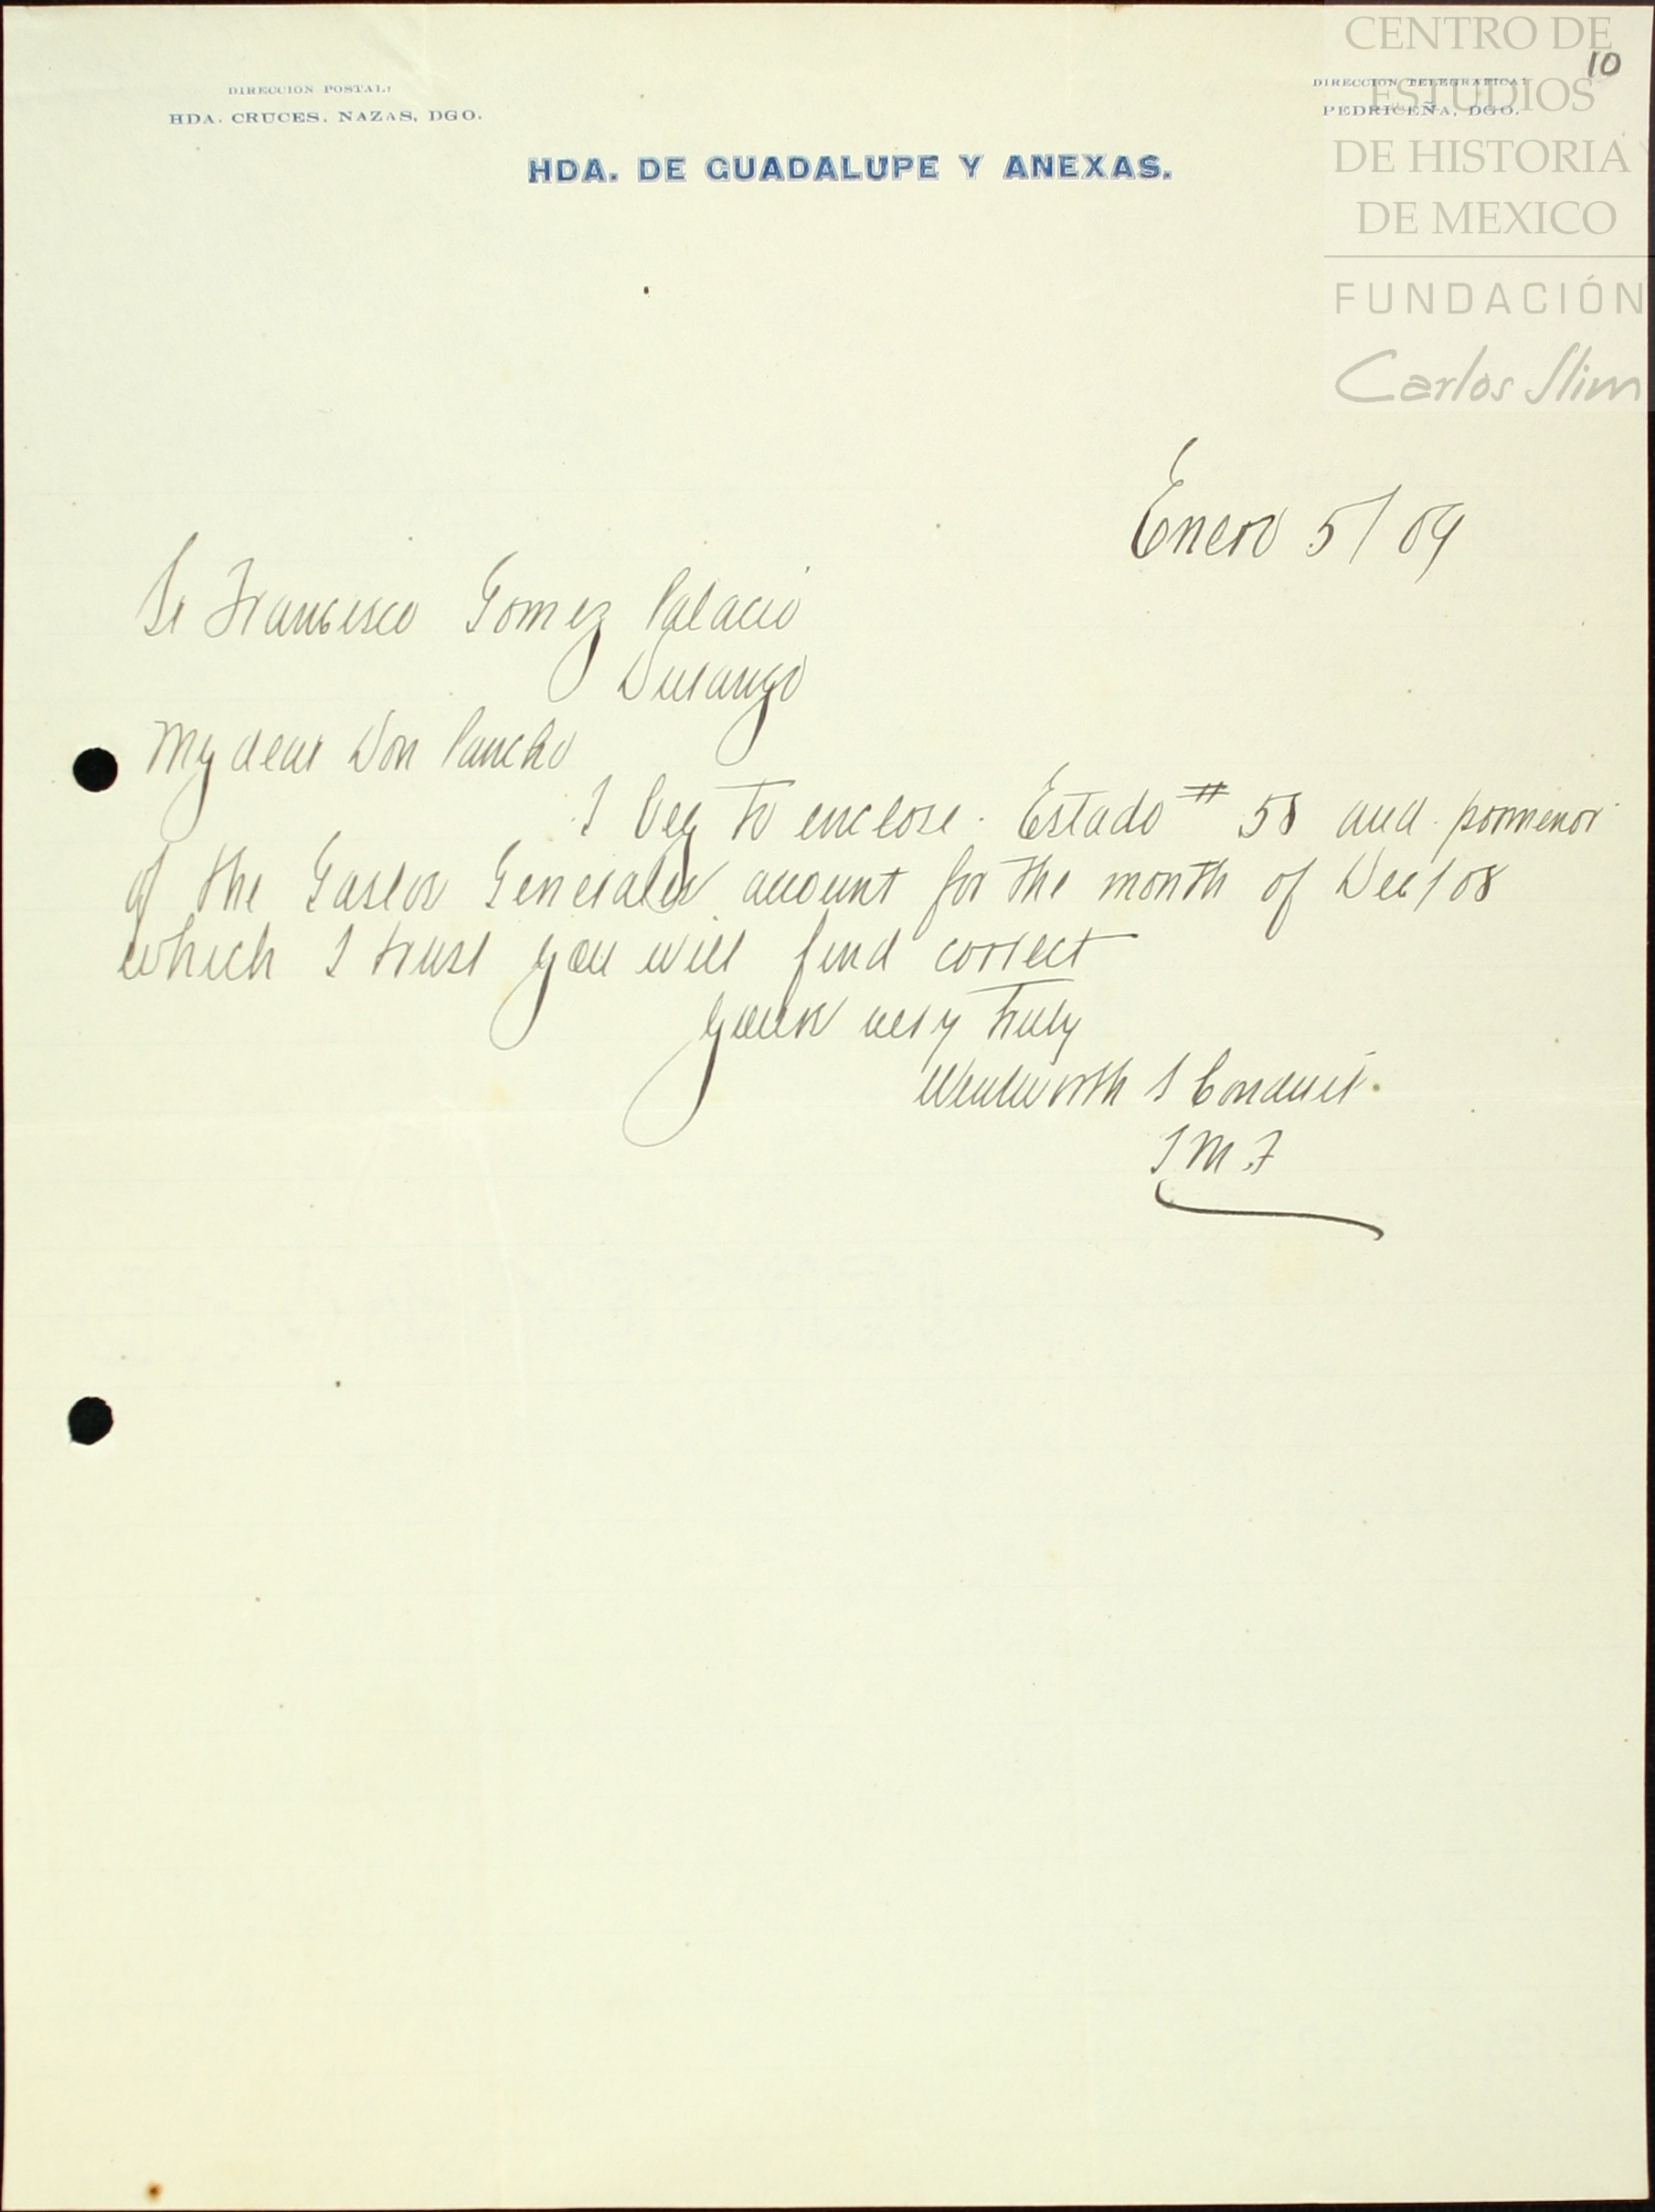 CENTRO DE
ESTUDIOS
DE HISTORIA
DE MEXICO
FUNDACIÓN
Carlos Slim
10
DIRECCION POSTAL:
HDA. CRUCES. NAZAS, DGO.
DIRECCION TELEGRAFICA:
PEDRICEÑA, DGO.
HDA. DE GUADALUPE Y ANEXAS.
Enero 5/09
Sr Francisco Gomez Palacio
Durango
My dear Don Pancho
I beg to enclose. Estado # 58 and pormenor
of the Gastos Generales account for the month of Dec/08
which I trust you will find correct
Yours very truly
Wentworth S Conduit.